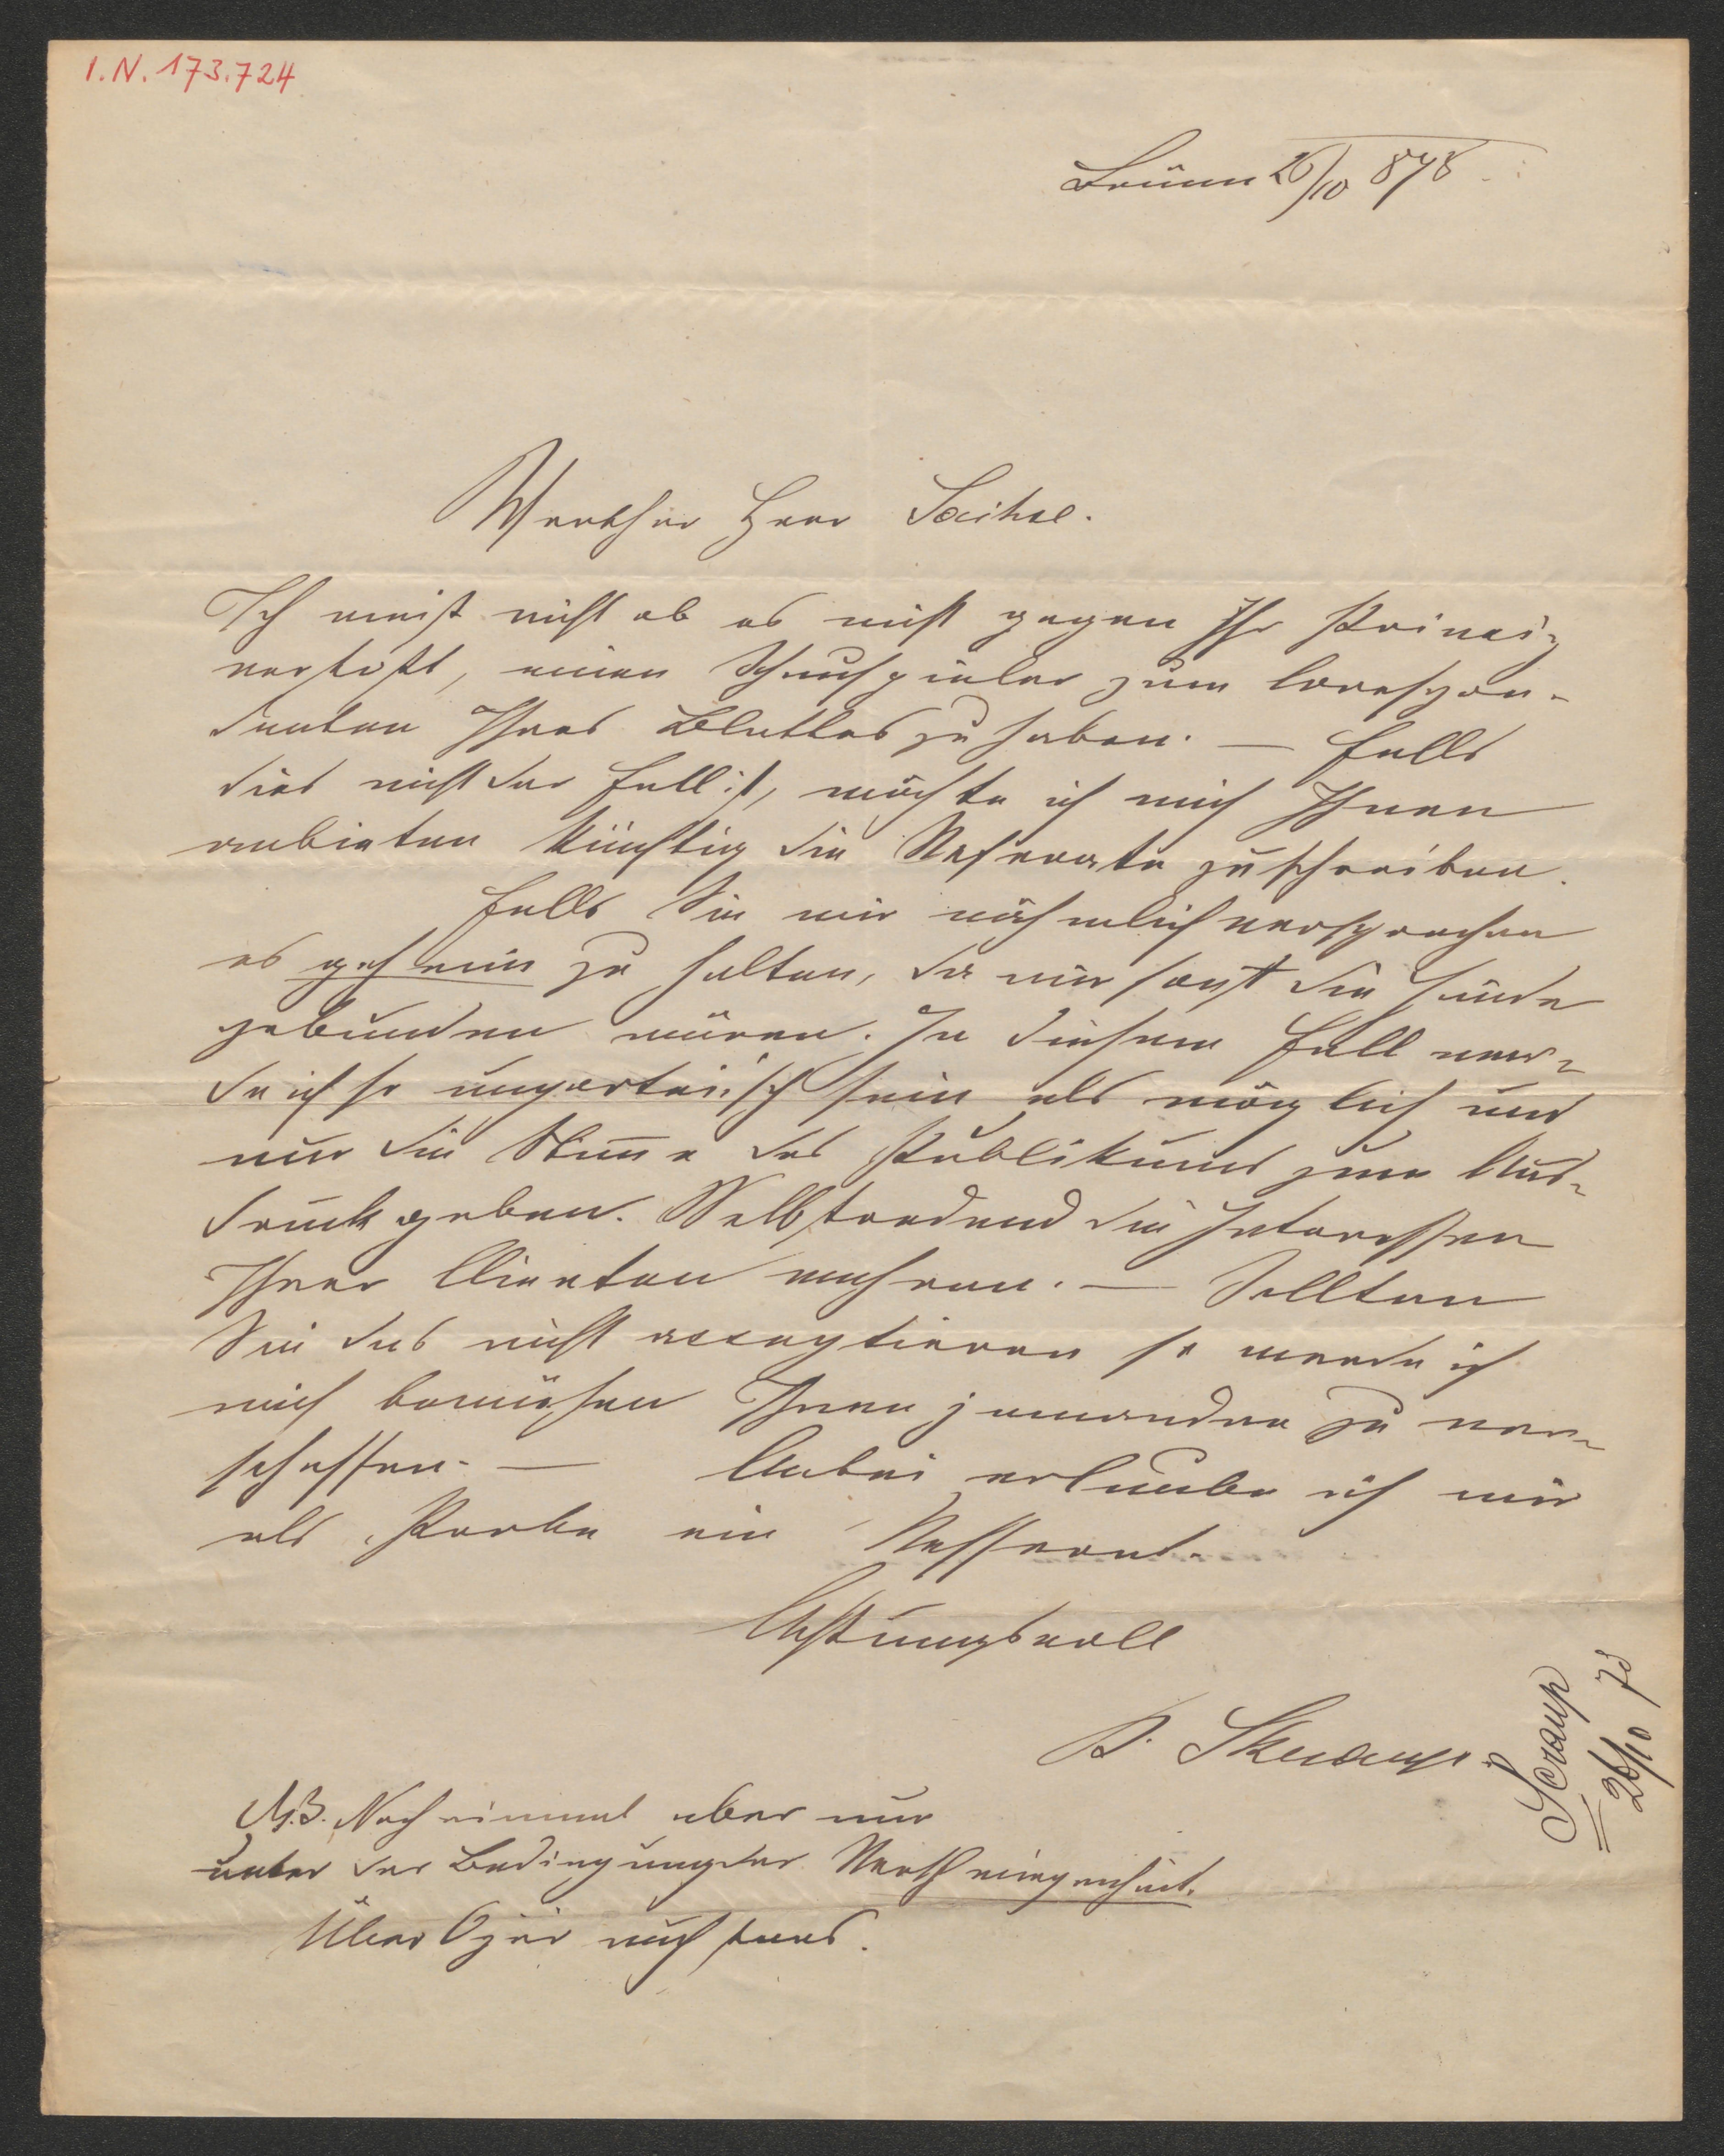 I.N. 173.724
Brünn 26/10 878
Werther Herr
Ich weiß nicht ob es nicht gegen Ihr Princip
verstoßt, einen Schauspieler zum Corespon-
denten Ihres Blattes zu haben. — Falls
dies nicht der Fall ist, möchte ich mich Ihnen
anbieten künftig die Referate zu schreiben.
Falls Sie mir nähmlich versprechen
es geheim zu halten, da mir sonst die Hände
gebunden wären. In diesem Fall wer-
de ich so unparteiisch sein als möglich und
nur die Stim̅e des Publikums zum Aus-
druck geben. Selbstredend die Interessen
Ihrer Clienten wahren. — Sollten
Sie das nicht acceptieren so werde ich
mich bemühen Ihnen jemanden zu ver-
schaffen. — Anbei erlaube ich mir
als Probe ein Refferat.
Achtungsvoll
K. Skraup
Scraup
26/10 78
N.B. Noch einmal aber nur
unter der Bedingung der Verschwiegenheit.
Über Oper nächstens.